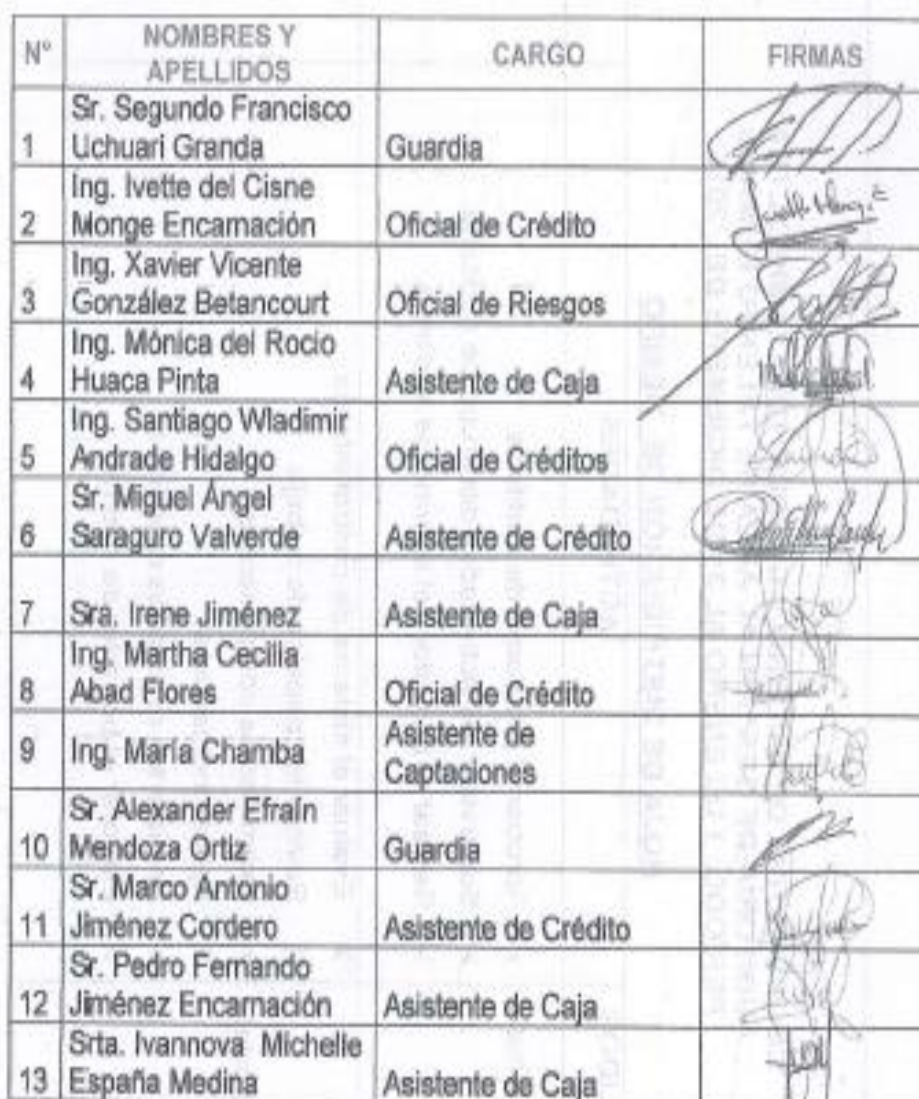 N° NOMBRES Y APELLIDOS CARGO FIRMAS
Sr. Segundo Francisco
1 Uchuari Granda Guardia
Ing. Ivette del Cisne
2 Monge Encarnación Oficial de Crédito
Ing. Xavier Vicente
3 González Betancourt Oficial de Riesgos
Ing. Mónica del Rocio
4 Huaca Pinta Asistente de Caja
Ing. Santiago Wladimir
5 Andrade Hidalgo Oficial de Créditos
Sr. Miguel Ángel
6 Saraguro Valverde Asistente de Crédito
7 Sra. Irene Jiménez Asistente de Caja
Ing. Martha Cecilia
8 Abad Flores Oficial de Crédito
9 Ing. María Chamba Asistente de
Captaciones
Sr. Alexander Efraín
10 Mendoza Ortiz Guardia
Sr. Marco Antonio
11 Jiménez Cordero Asistente de Crédito
Sr. Pedro Fernando
12 Jiménez Encarnación Asistente de Caja
Srta. Ivannova Michelle
13 España Medina Asistente de Caja